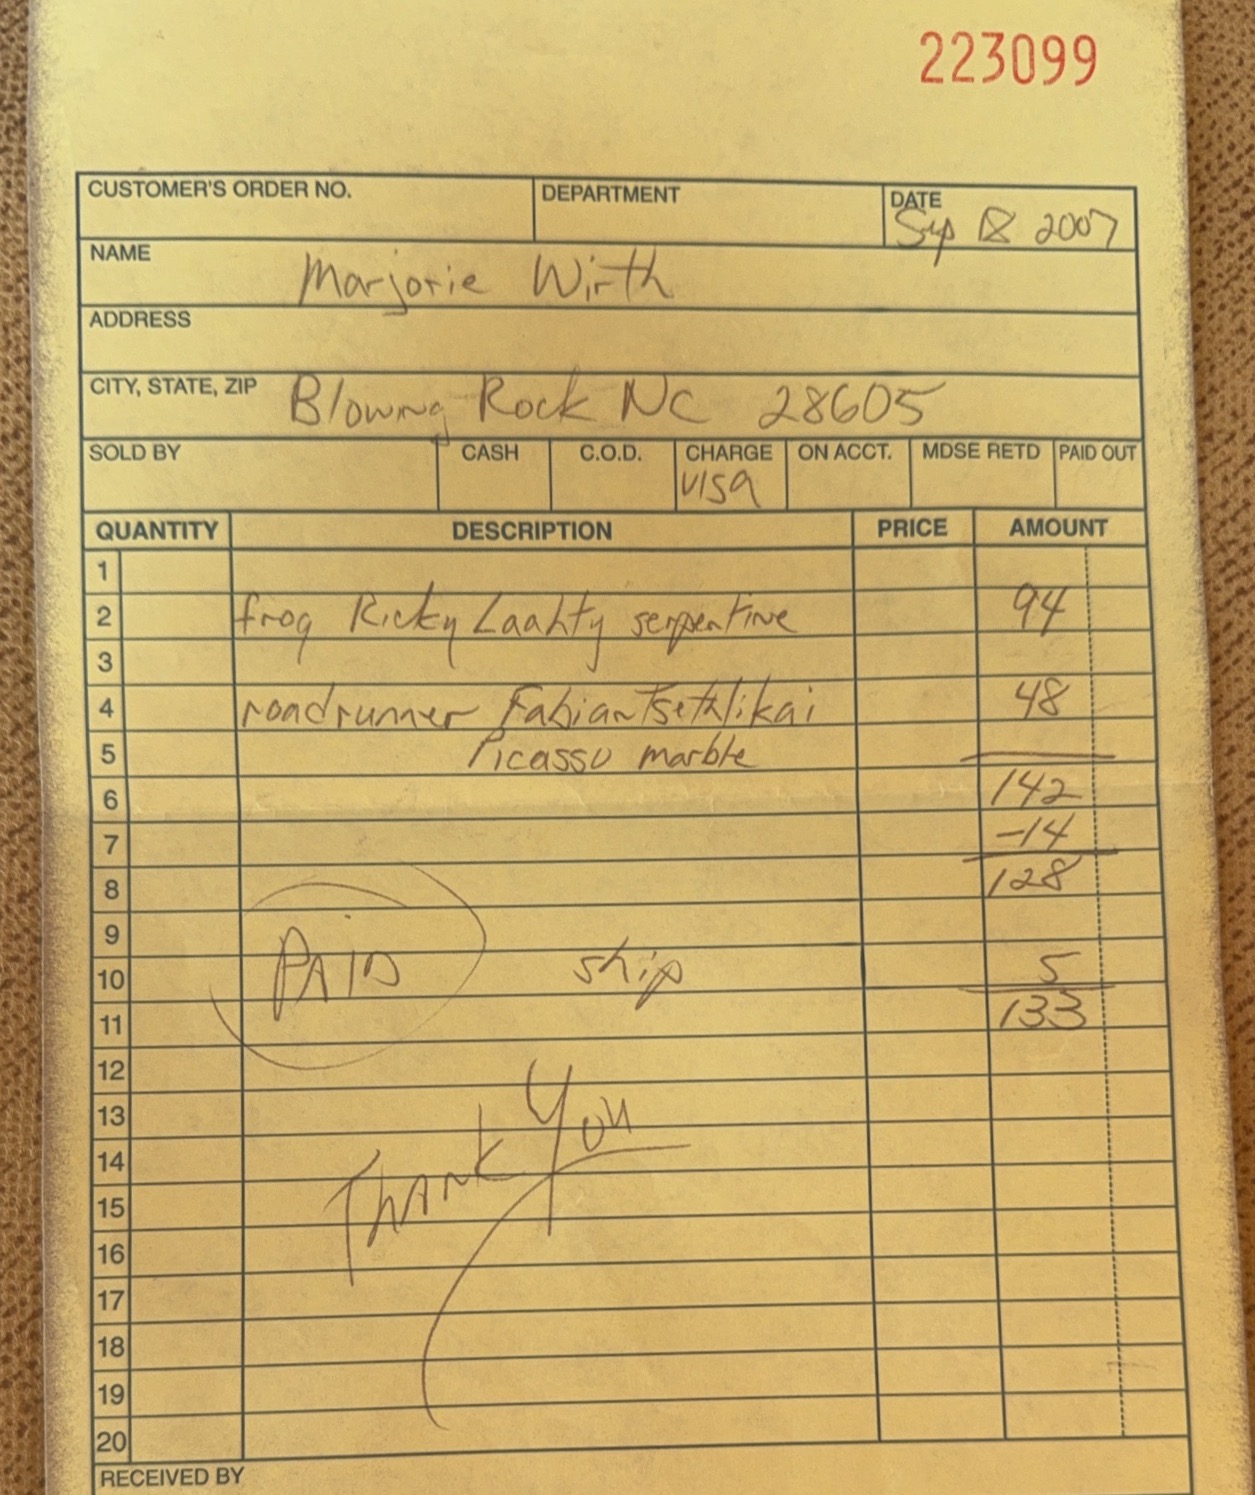 223099
CUSTOMER'S ORDER NO. DEPARTMENT DATE
Sep 2007
NAME Marjorie Wirth
ADDRESS
CITY, STATE, ZIP Blowng Rock NC 28605
SOLD BY CASH C.O.D. CHARGE ON ACCT. MDSE RETD PAID OUT
VISA
QUANTITY DESCRIPTION PRICE AMOUNT
1
2 frog Ricky Laahty serpentine 94
3
4 roadrunner Fabian Tsethlikai 48
5 Picasso marble
6 142
7 -14
8 128
9
10 PAID ship 5
11 133
12
13 Thank You
14
15
16
17
18
19
20
RECEIVED BY